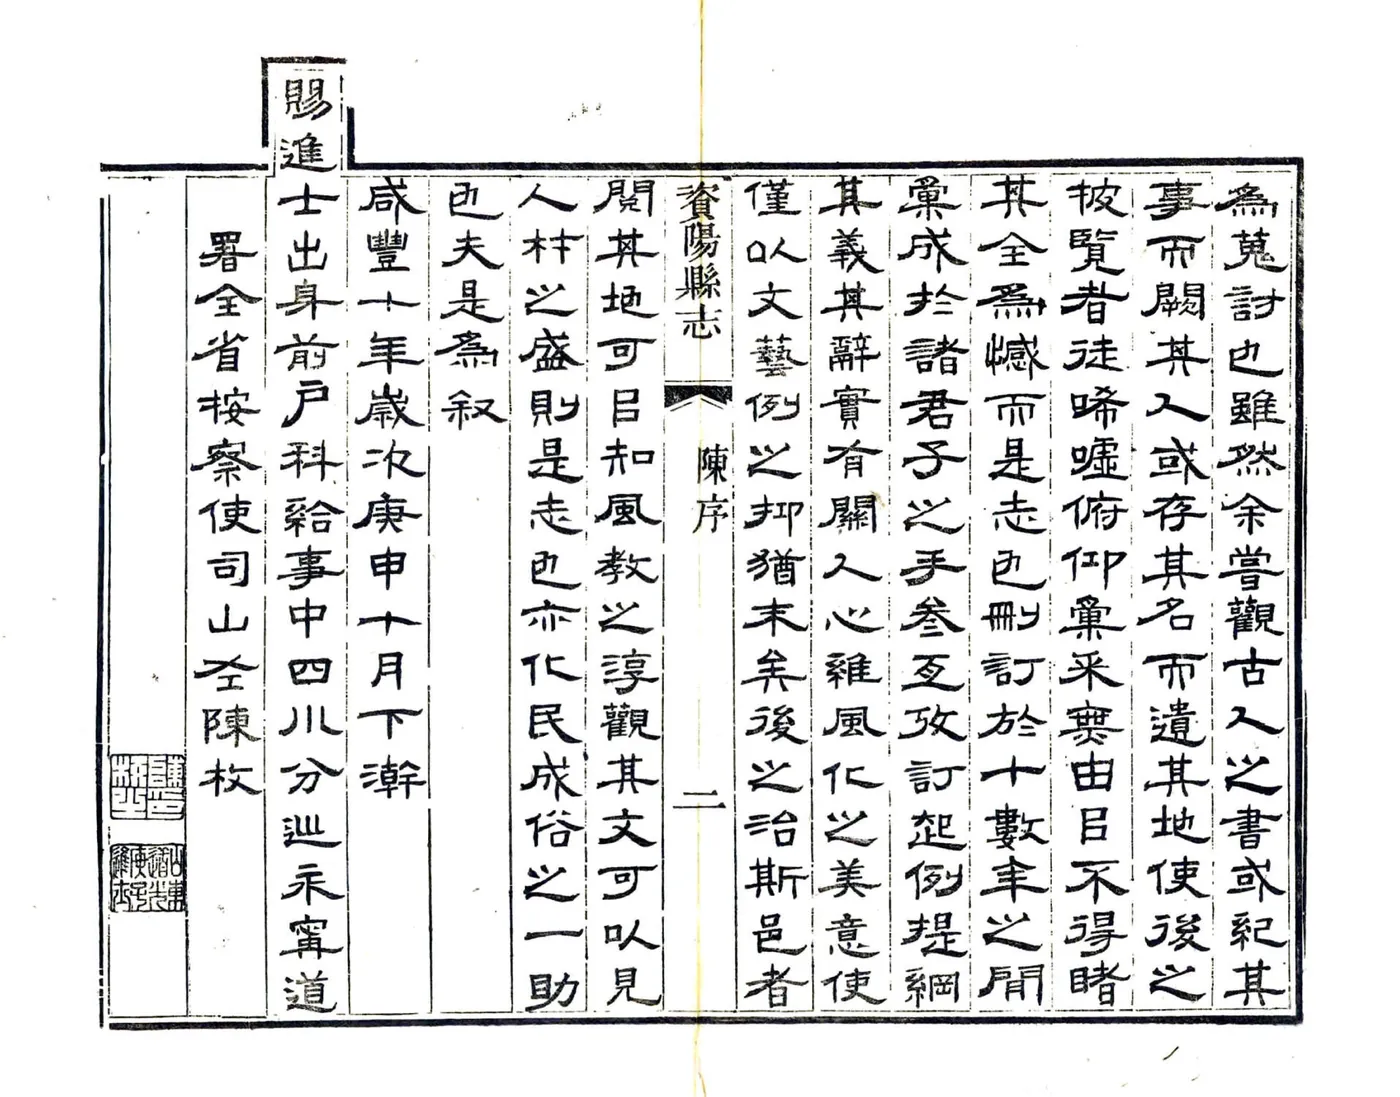 為蒐討也雖然余嘗觀古人之書或紀其
事而闕其人或存其名而遺其地使後之
披覽者徒唏噓俯仰彙采無由㠯不得睹
其全為憾而是志也刪訂於十數年之間
彙成於諸君子之手叄互攷訂起例提綱
其義其辭實有關人心維風化之美意使
僅以文藝例之抑猶末矣後之治斯邑者
資陽縣志
陳序
二
閱其地可㠯知風教之淳觀其文可以見
人材之盛則是志也亦化民成俗之一助
也夫是為叙
咸豐十年歲次庚申十月下澣
賜進士出身前戶科給事中四川分巡永甯道
署全省按察使司山左陳枚